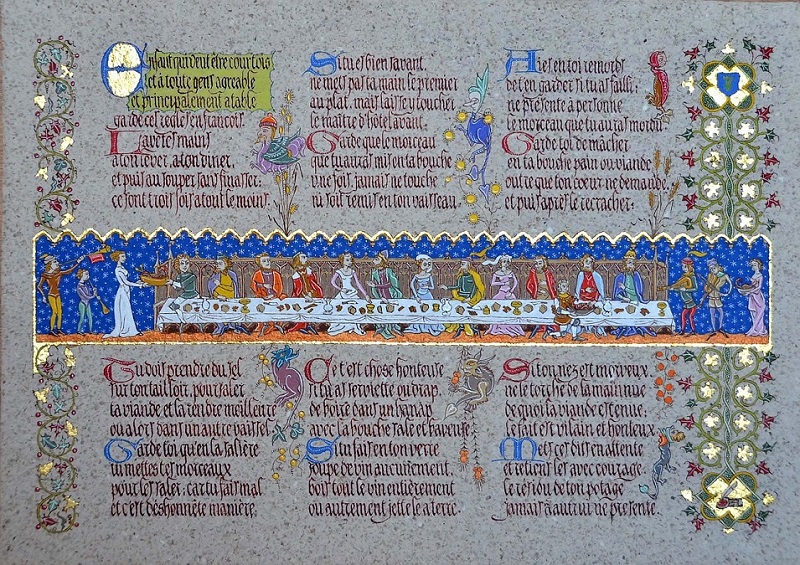 Enfant qui veut être courtois
et à toute gens agreable
et principalement a table
garde ces regles en francois.
Lave tes mains
a ton lever, a ton diner,
et puis au souper sans finasser:
ce sont trois fois a tout le moins.
Si tu es bien savant,
ne mets pas ta main le premier
au plat, mais laisse y toucher
le maître d'hôtel avant.
Garde que le morceau
que tu auras mis en ta bouche
une fois, jamais ne touche
ni soit remis en ton vaisseau.
Aies en toi remords
de t'en garder si tu as failli:
ne présente à personne
le morceau que tu auras mordu
Garde toi de mâcher
en ta bouche pain ou viande
outre que ton coeur ne demande,
et puis après le recracher.
Tu dois prendre du sel
sur ton tailloir, pour saler
ta viande et la rendre meilleure
ou alors dans un autre vaissel
Garde toi qu'en la salière
tu mettes tes morceaux
pour les saler; car tu fais mal
et c'est déshonnête manière.
Ce t'est chose honteuse
si tu as serviette ou drap
de boire dans un hanap
avec la bouche sale et baveuse
Si tu fais en ton verre
soupe de vin aucunement,
bois tout le vin entièrement
ou autrement jette le à terre.
Si ton nez est morveux
ne le torche de la main nue
de quoi ta viande est tenue:
le fait est vilain et honteux
Mets ces dits en attente
et retiens les avec courage
le résidu de ton potage
jamais à autrui ne présente.